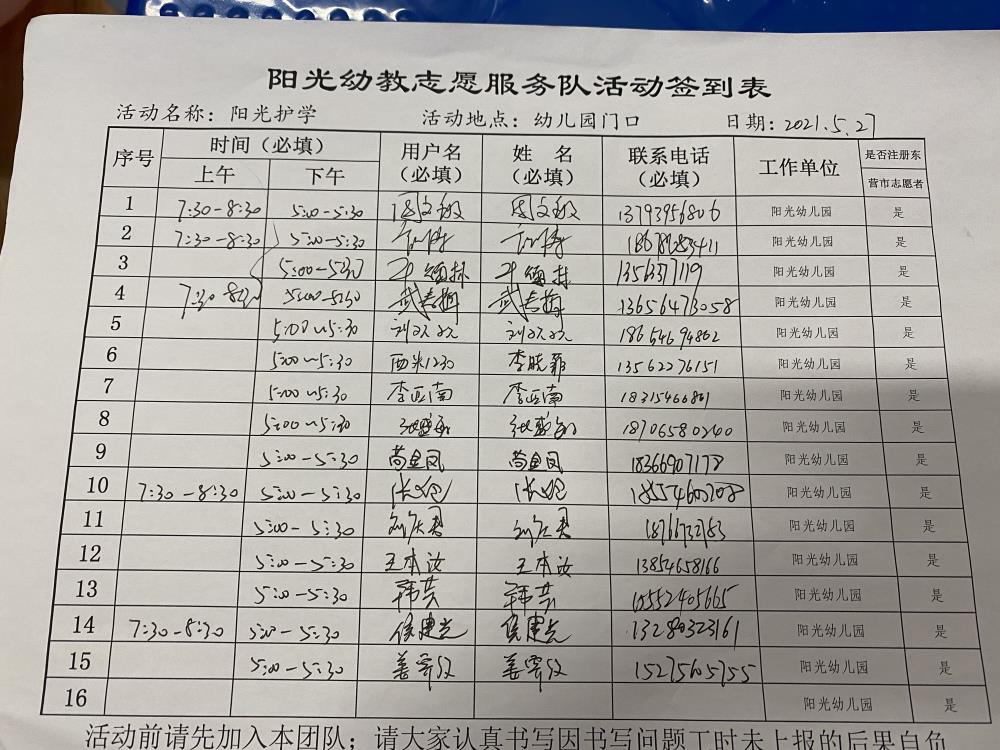 阳光幼教志愿服务队活动签到表
活动名称：阳光护学 活动地点：幼儿园门口 日期：2021.5.27
序号 时间（必填） 用户名（必填） 姓 名（必填） 联系电话（必填） 工作单位 是否注册东营市志愿者
上午 下午
1 7:30-8:30 5:00-5:30 13793956806 阳光幼儿园 是
2 7:30-8:30 5:00-5:30 阳光幼儿园 是
3 5:00-5:30 阳光幼儿园 是
4 7:30-8:30 武春梅 武春梅 13656473058 阳光幼儿园 是
5 5:00~5:30 刘欢欢 刘欢欢 18654694802 阳光幼儿园 是
6 5:00~5:30 西米1230 李晓菲 13562276151 阳光幼儿园 是
7 5:00-5:30 李正南 李正南 阳光幼儿园 是
8 5:00-5:30 18706580240 阳光幼儿园 是
9 5:00-5:30 苟金凤 苟金凤 18366907178 阳光幼儿园 是
10 7:30-8:30 5:00-5:30 阳光幼儿园 是
11 5:00-5:30 阳光幼儿园 是
12 5:00-5:30 王本汝 王本汝 13854658166 阳光幼儿园 是
13 5:00-5:30 韩芸 韩芸 阳光幼儿园 是
14 7:30-8:30 5:00-5:30 侯建光 侯建光 13280323161 阳光幼儿园 是
15 5:00-5:30 15275605755 阳光幼儿园 是
16 阳光幼儿园 是
活动前请先加入本团队；请大家认真书写因书写问题工时未上报的后果自负